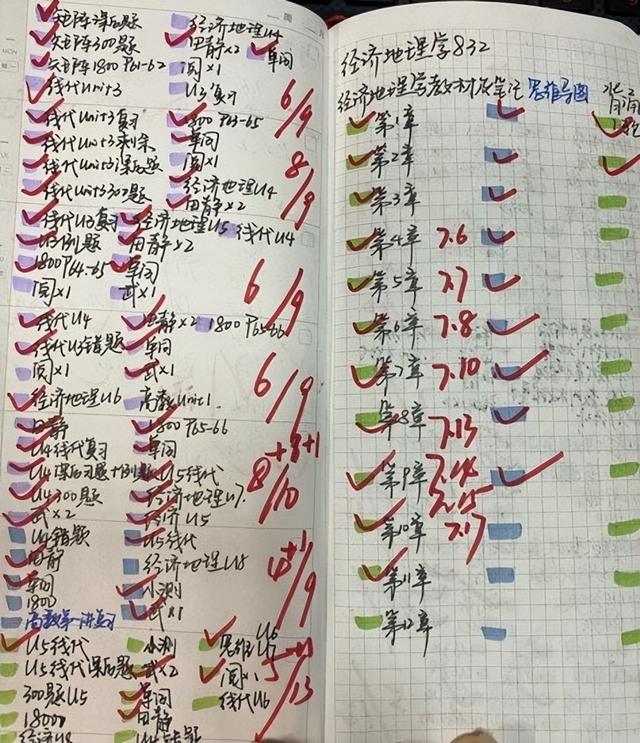 矩阵课后题 经济地理U4
矩阵300题 田静×2 单词
矩阵1800 P61-62 阅×1
线代Unit3 U3复习
6/9
线代Unit3复习 1800 P63-65
线代Unit3 单词
线代Unit3课后题 阅×1
线代Unit3 300题 经济地理U4
田静×2
8/9
线代U3复习 经济地理U5 线代U4
U3例题 田静×2
1800 P64-65 单词
阅×1 武×1
6/9
线代U4 田静×2 1800 P65-66
线代U3错题 单词
阅×1 武×1
经济地理U6 高数Unit1
6/9
田静 1800 P65-66
U4线代复习 单词
U4课后习题+例题 U5线代
U4 300题 经济地理U7
武×2 经济U5
8+1+1/10
U4错题 U5线代
田静 经济地理U8
单词 小测
1800 武×1
高数第一讲复习
4+1/9
U5线代 小测 思维U6
U5线代课后题 武×2 阅×1
300题U5 单词 线代U6
1800 田静
经济U8
经济地理学832
经济地理学教材及笔记 思维导图
第1章
第2章
第3章
第4章 7.6
第5章 7.7
第6章 7.8
第7章 7.10
第8章 7.13
第9章 7.14
7.15
第10章 7.17
第11章
第12章